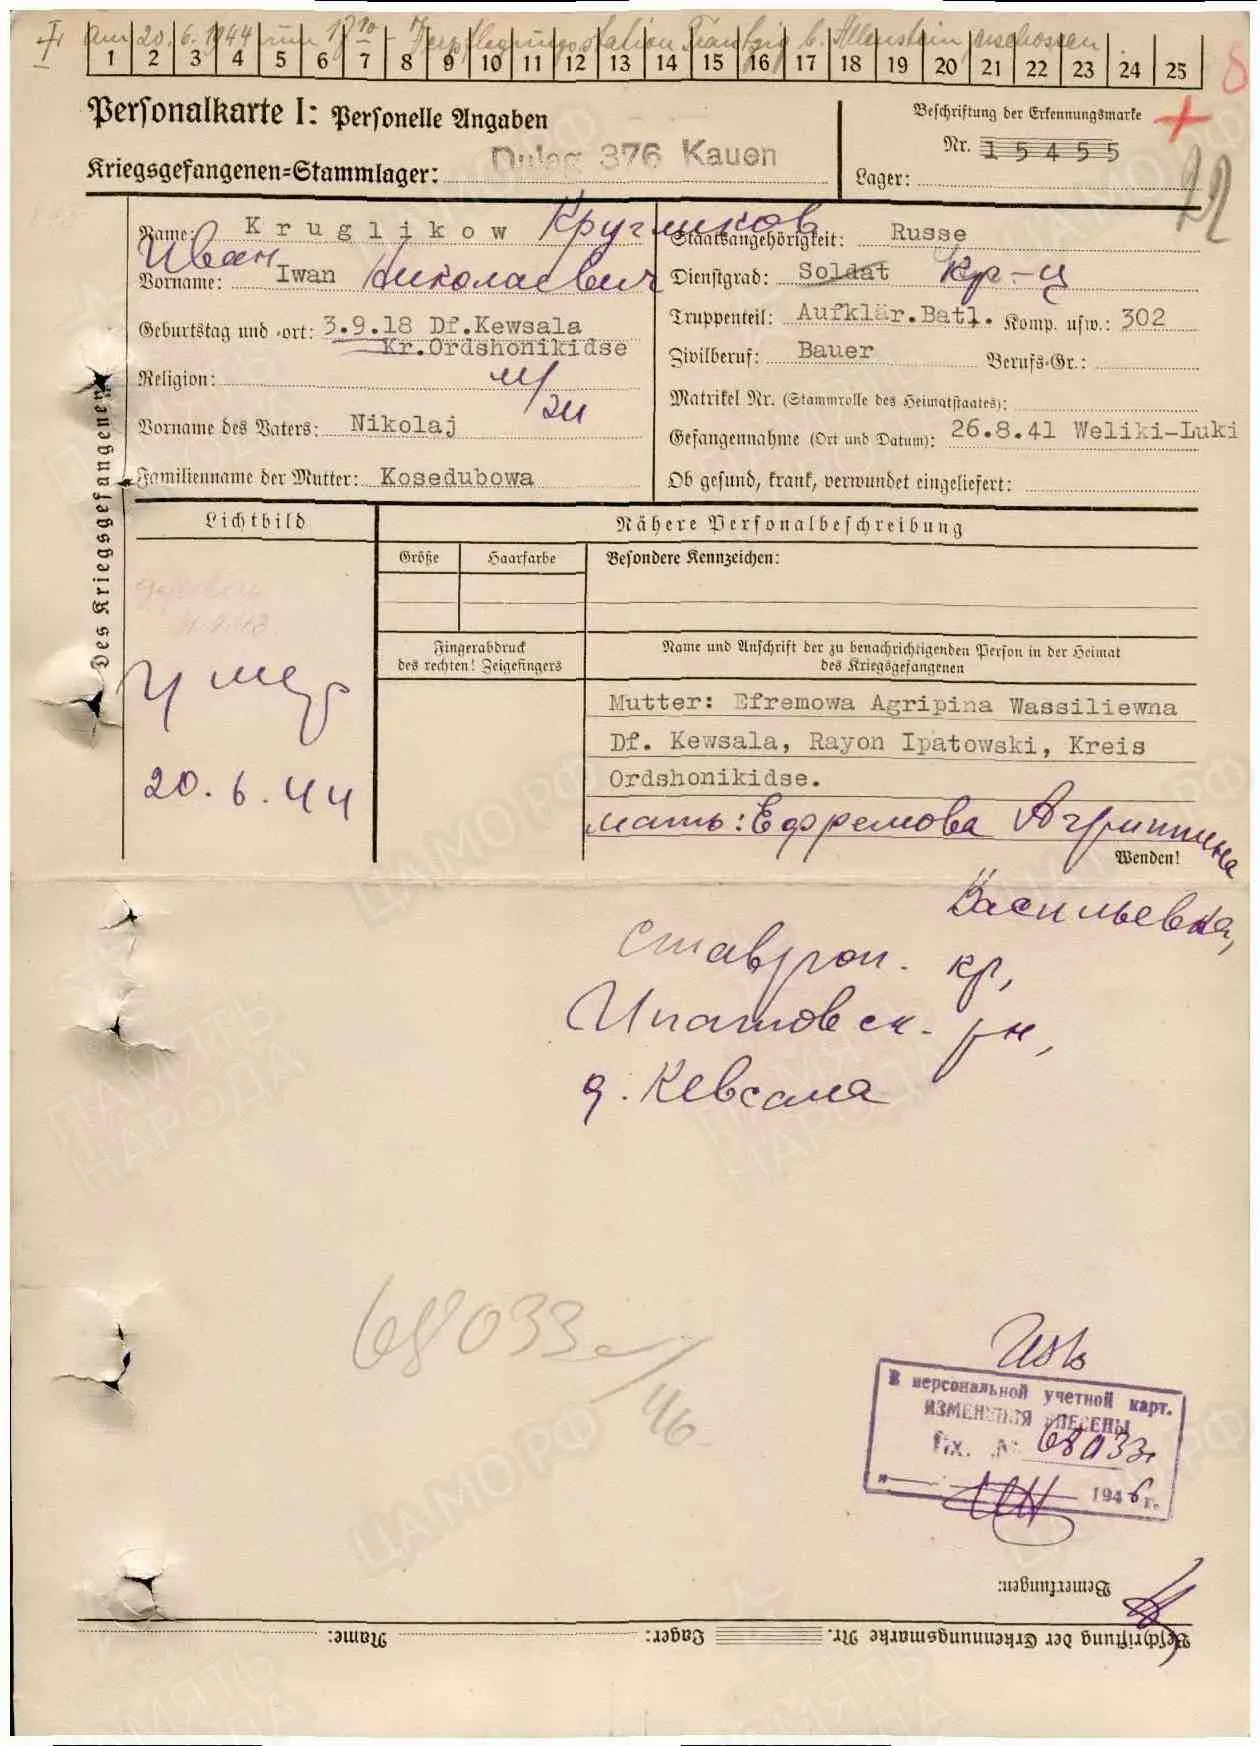 Am 20.6.1944 um 17¹⁰ Verpflegungsstation Trautzig b. Allenstein erschossen.
1 2 3 4 5 6 7 8 9 10 11 12 13 14 15 16 17 18 19 20 21 22 23 24 25
Personalkarte I: Personelle Angaben
Kriegsgefangenen-Stammlager: Dulag 376 Kauen
Beschriftung der Erkennungsmarke
Nr. 15455
Lager:
22
Des Kriegsgefangenen
Name: Kruglikow Кругликов
Иван
Vorname: Iwan Николаевич
Geburtstag und -ort: 3.9.18 Df.Kewsala
Kr.Ordshonikidse
Religion:
Vorname des Vaters: Nikolaj
Familienname der Mutter: Kosedubowa
Staatsangehörigkeit: Russe
Dienstgrad: Soldat Кр-ц
Truppenteil: Aufklär.Batl. Komp. usw.: 302
Zivilberuf: Bauer Berufs-Gr.:
Matrikel Nr. (Stammrolle des Heimatstaates):
Gefangennahme (Ort und Datum): 26.8.41 Weliki-Luki
Ob gesund, krank, verwundet eingeliefert:
Lichtbild
умер
20.6.44
Nähere Personalbeschreibung
Größe Haarfarbe Besondere Kennzeichen:
Fingerabdruck
des rechten! Zeigefingers
Name und Anschrift der zu benachrichtigenden Person in der Heimat
des Kriegsgefangenen
Mutter: Efremowa Agripina Wassiliewna
Df. Kewsala, Rayon Ipatowski, Kreis
Ordshonikidse.
мать: Ефремова Агриппина
Wenden!
Васильевна,
Ставроп. кр,
Ипатовск. рн,
д. Кевсала
68033с/46.
В персональной учетной карт.
ИЗМЕНЕНИЯ ВНЕСЕНЫ
Вх. № 68033с
1946 г.
Bemerkungen:
Beschriftung der Erkennungsmarke Nr. Lager: Name:
ЦАМО РФ
ПАМЯТЬ НАРОДА